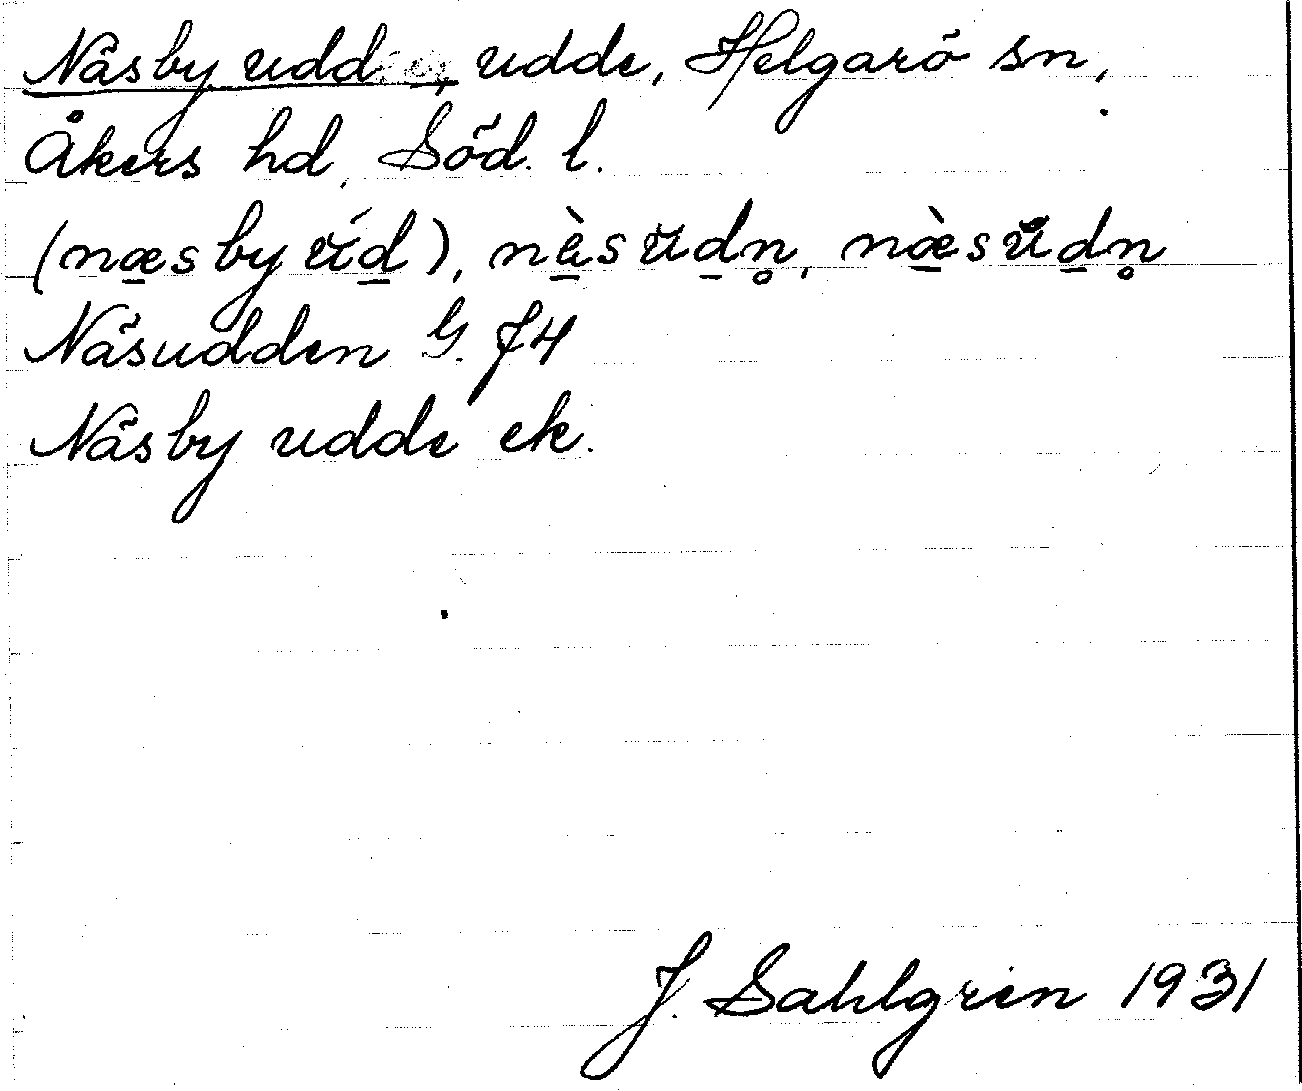 Näsby udd, udde, Helgarö sn,
Åkers hd, Söd. l.
(næsby ud), nèsudn̥, næ̀sudn̥
Näsudden G. J4
Näsby udde ek.
J. Sahlgren 1931